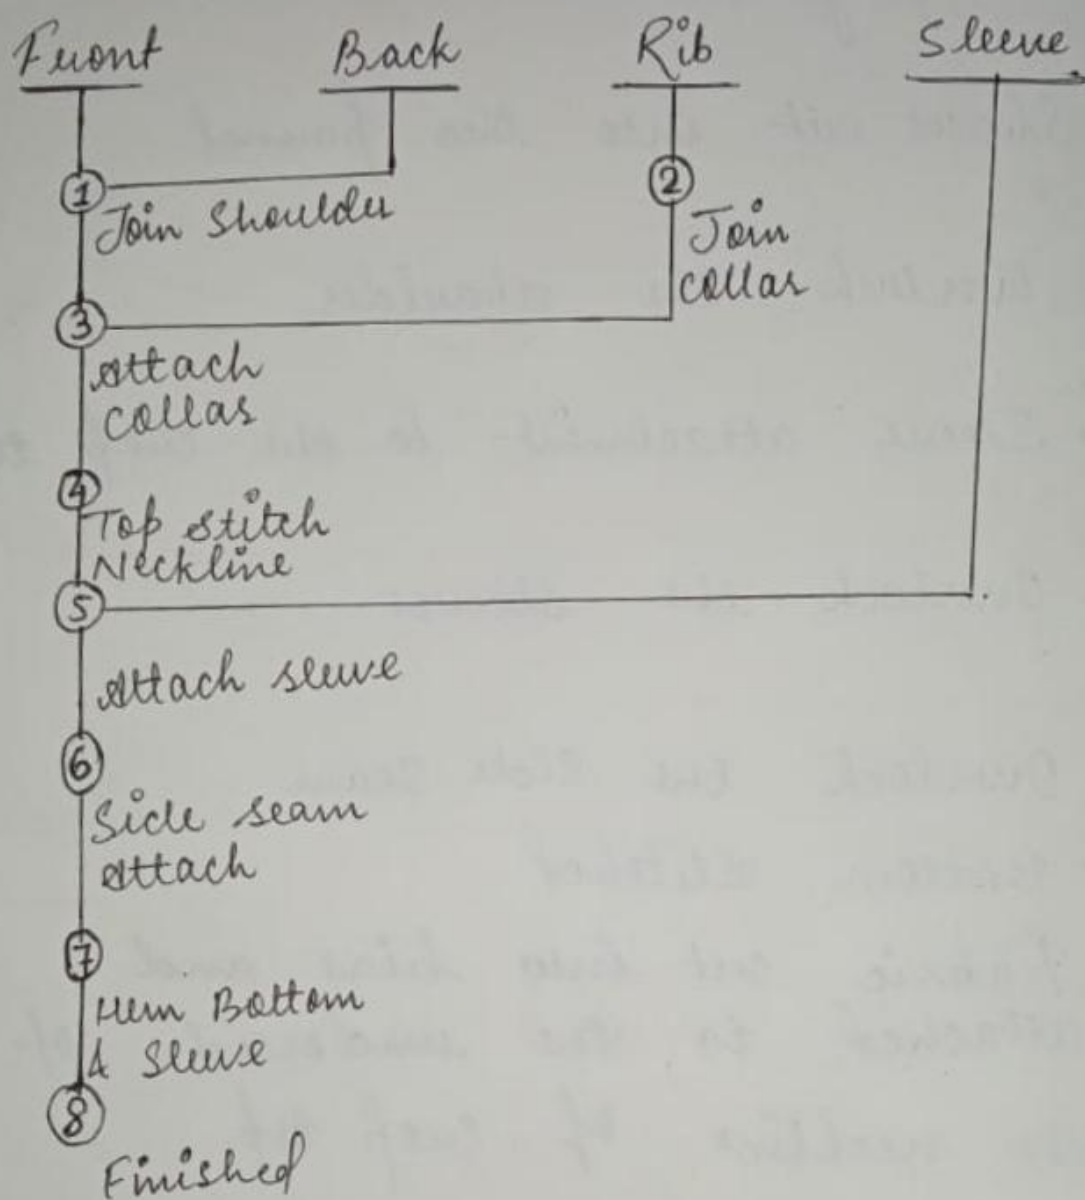 Front Back Rib Sleeve
1 2
Join Shoulder
Join
collar
3
Attach
collar
4
Top stitch
Neckline
5
Attach sleeve
6
Side seam
attach
7
Hem Bottom
& Sleeve
8
Finished